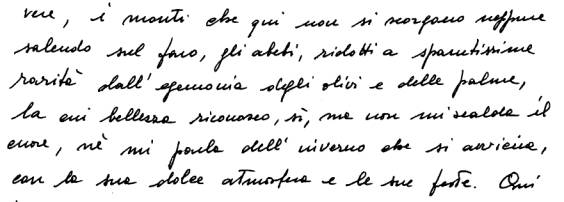 vere, i monti che qui non si scorgono neppure
salendo sul faro, gli abeti, ridotti a sparutissime
rarità dall'egemonia degli olivi e delle palme,
la cui bellezza riconosco, sì, ma non mi scalda il
cuore, nè mi parla dell'inverno che si avvicina,
con la sua dolce atmosfera e le sue feste. Qui